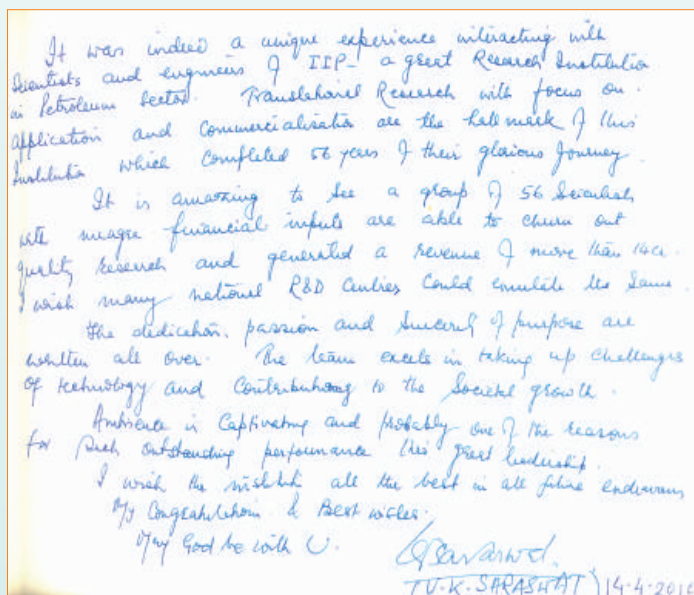 It was indeed a unique experience interacting with
Scientists and engineers of IIP- a great Research Institution
in Petroleum Sector. Translational Research with focus on
application and commercialisation are the hallmark of this
Institution which completed 56 years of their glorious Journey.
It is amazing to see a group of 56 Scientists
with meagre financial inputs are able to churn out
quality research and generated a revenue of more than 14cr.
I wish many national R&D Centres could emulate the Same.
The dedication, passion and Sincerity of purpose are
written all over. The team excels in taking up challenges
of technology and Contributing to the Societal growth.
Ambience is Captivating and probably one of the reasons
for such outstanding performance this great leadership.
I wish the institute all the best in all future endeavours
My Congratulations & Best wishes.
May God be with U.
(V.K. SARASWAT) 14-4-2016